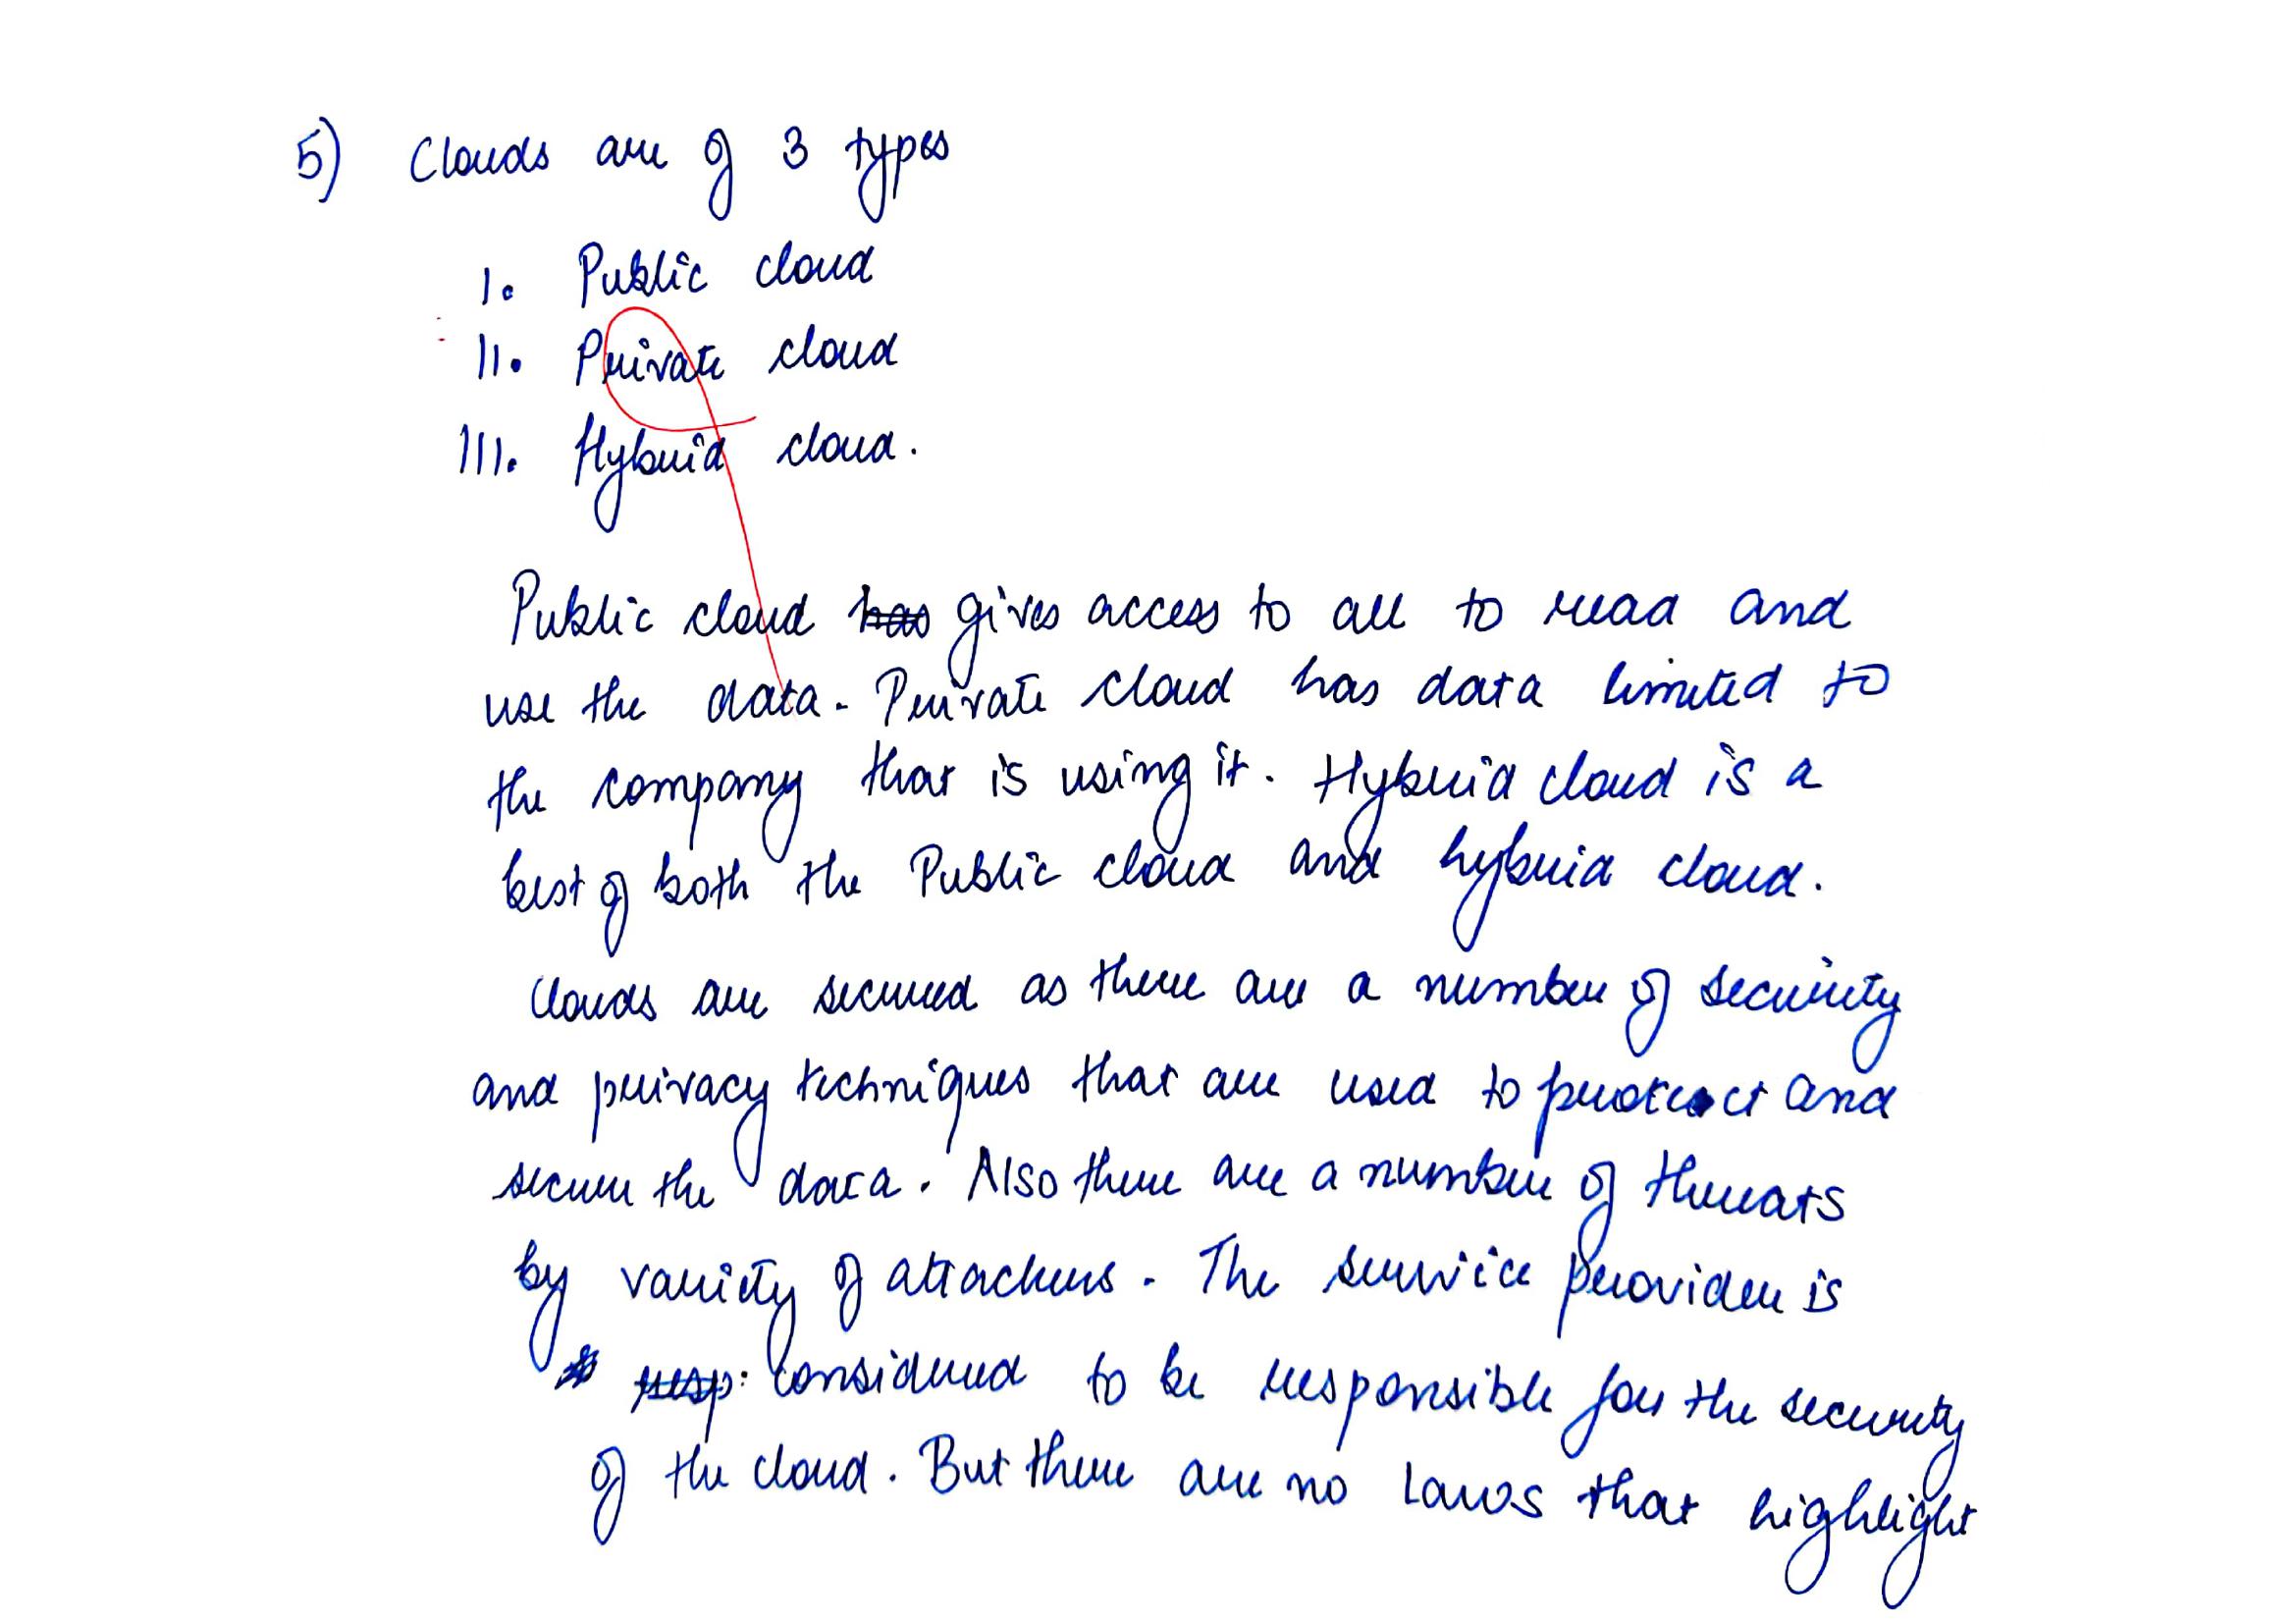 5) Clouds are of 3 types
I. Public cloud
II. Private cloud
III. Hybrid cloud.
Public cloud has gives access to all to read and
use the data. Private cloud has data limited to
the company that is using it. Hybrid cloud is a
best of both the Public cloud and hybrid cloud.
Clouds are secured as there are a number of security
and privacy techniques that are used to protect and
secure the data. Also there are a number of threats
by variety of attackers. The service provider is
resp: considered to be responsible for the security
of the cloud. But there are no laws that highlight